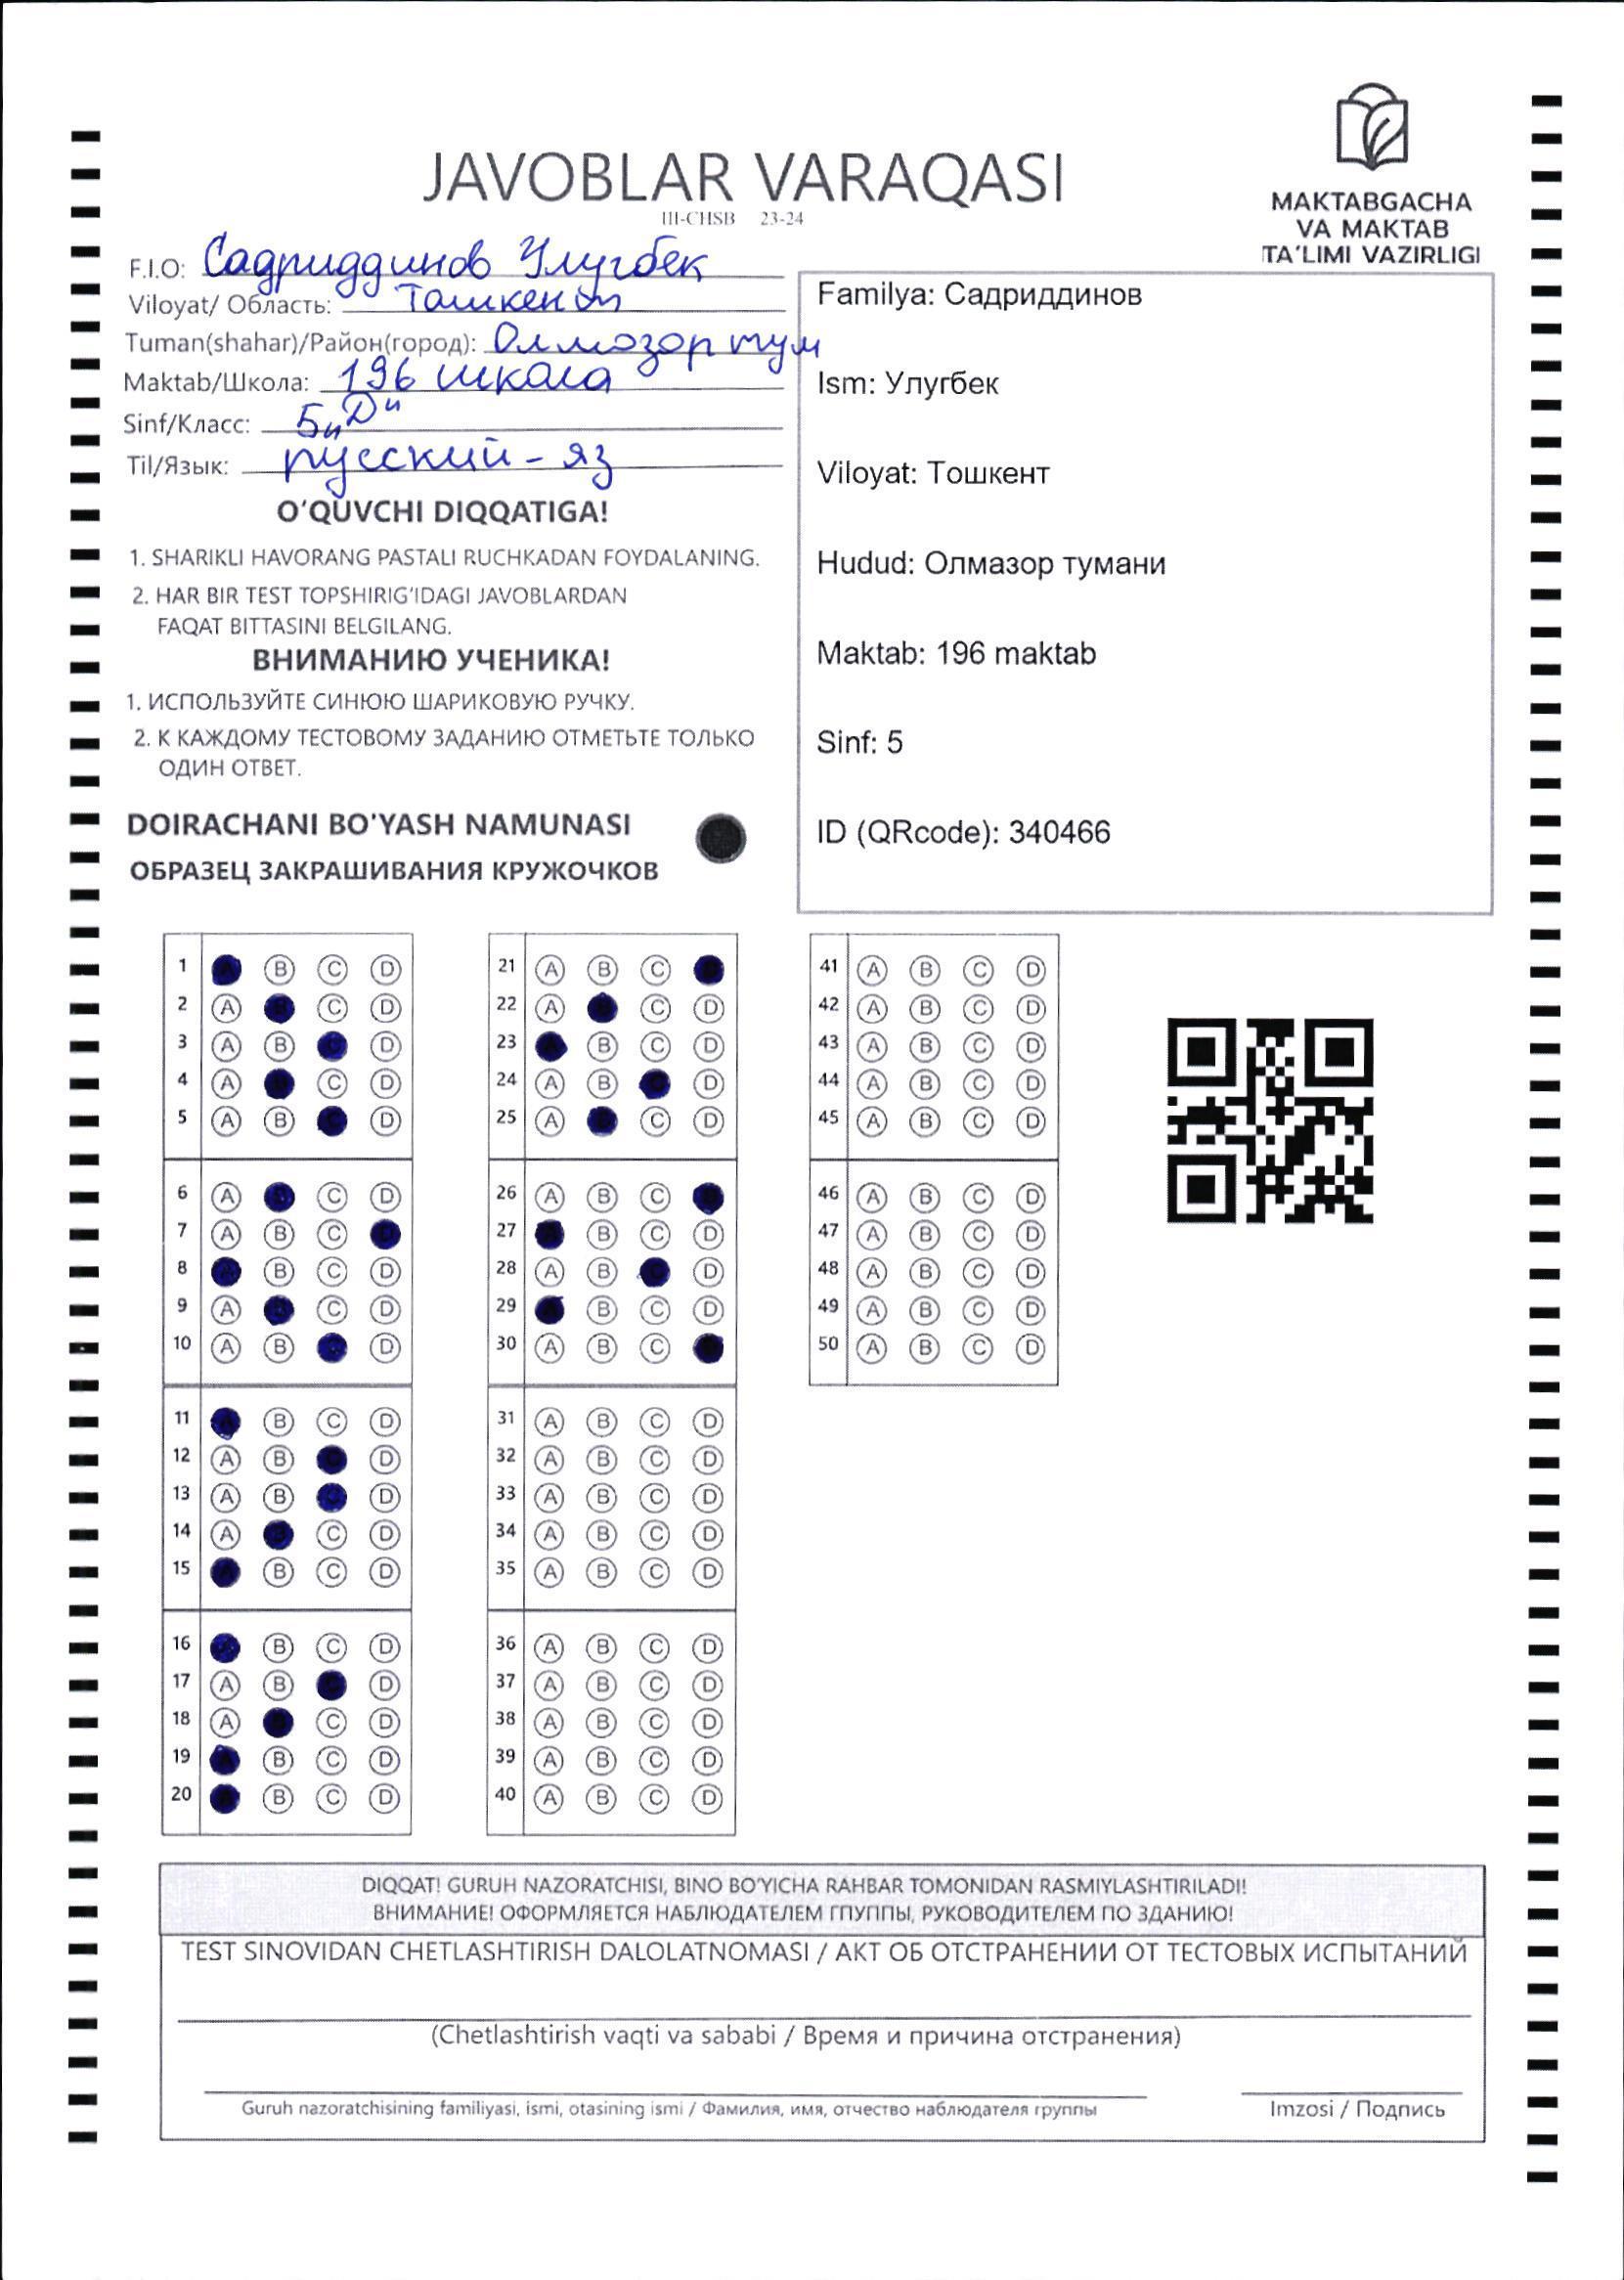 JAVOBLAR VARAQASI
III-CHSB 23-24
MAKTABGACHA
VA MAKTAB
TA'LIMI VAZIRLIGI
F.I.O: Садриддинов Улугбек
Viloyat/ Область: Ташкент
Tuman(shahar)/Район(город): Олмозор тум
Maktab/Школа: 196 школа
Sinf/Класс: 5„D“
Til/Язык: русский - яз
O'QUVCHI DIQQATIGA!
1. SHARIKLI HAVORANG PASTALI RUCHKADAN FOYDALANING.
2. HAR BIR TEST TOPSHIRIG'IDAGI JAVOBLARDAN
FAQAT BITTASINI BELGILANG.
ВНИМАНИЮ УЧЕНИКА!
1. ИСПОЛЬЗУЙТЕ СИНЮЮ ШАРИКОВУЮ РУЧКУ.
2. К КАЖДОМУ ТЕСТОВОМУ ЗАДАНИЮ ОТМЕТЬТЕ ТОЛЬКО
ОДИН ОТВЕТ.
DOIRACHANI BO'YASH NAMUNASI
ОБРАЗЕЦ ЗАКРАШИВАНИЯ КРУЖОЧКОВ
Familya: Садриддинов
Ism: Улугбек
Viloyat: Тошкент
Hudud: Олмазор тумани
Maktab: 196 maktab
Sinf: 5
ID (QRcode): 340466
1 A B C D
2 A B C D
3 A B C D
4 A B C D
5 A B C D
6 A B C D
7 A B C D
8 A B C D
9 A B C D
10 A B C D
11 A B C D
12 A B C D
13 A B C D
14 A B C D
15 A B C D
16 A B C D
17 A B C D
18 A B C D
19 A B C D
20 A B C D
21 A B C D
22 A B C D
23 A B C D
24 A B C D
25 A B C D
26 A B C D
27 A B C D
28 A B C D
29 A B C D
30 A B C D
31 A B C D
32 A B C D
33 A B C D
34 A B C D
35 A B C D
36 A B C D
37 A B C D
38 A B C D
39 A B C D
40 A B C D
41 A B C D
42 A B C D
43 A B C D
44 A B C D
45 A B C D
46 A B C D
47 A B C D
48 A B C D
49 A B C D
50 A B C D
DIQQAT! GURUH NAZORATCHISI, BINO BO'YICHA RAHBAR TOMONIDAN RASMIYLASHTIRILADI!
ВНИМАНИЕ! ОФОРМЛЯЕТСЯ НАБЛЮДАТЕЛЕМ ГПУППЫ, РУКОВОДИТЕЛЕМ ПО ЗДАНИЮ!
TEST SINOVIDAN CHETLASHTIRISH DALOLATNOMASI / АКТ ОБ ОТСТРАНЕНИИ ОТ ТЕСТОВЫХ ИСПЫТАНИЙ
(Chetlashtirish vaqti va sababi / Время и причина отстранения)
Guruh nazoratchisining familiyasi, ismi, otasining ismi / Фамилия, имя, отчество наблюдателя группы
Imzosi / Подпись